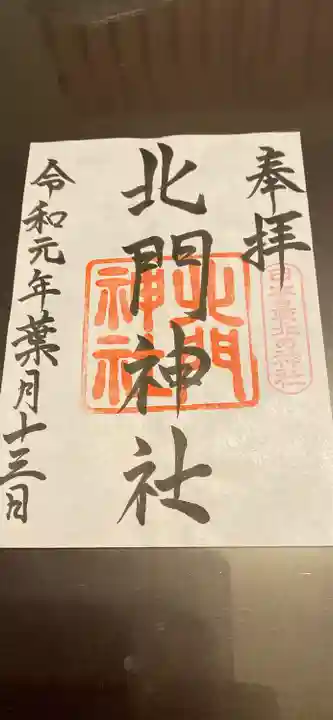 奉拝
日本最北の神社
北門神社
北門
神社
令和元年葉月十三日